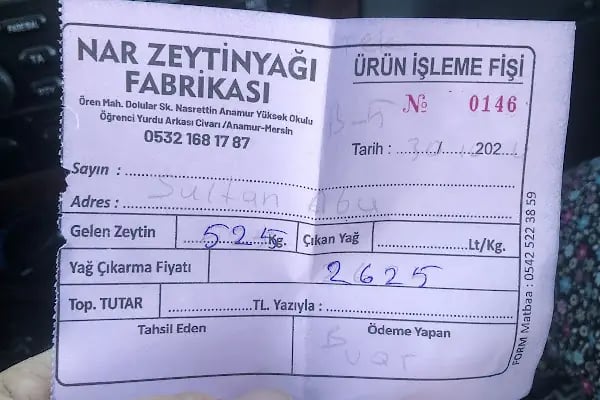 NAR ZEYTİNYAĞI
FABRİKASI
Ören Mah. Dolular Sk. Nasrettin Anamur Yüksek Okulu
Öğrenci Yurdu Arkası Civarı /Anamur-Mersin
0532 168 17 87
ÜRÜN İŞLEME FİŞİ
№ 0146
B-5
Tarih : ....../......202....
Sayın :
Sultan Abu
Adres :
Gelen Zeytin 525 Kg. Çıkan Yağ Lt/Kg.
Yağ Çıkarma Fiyatı 2625
Top. TUTAR TL. Yazıyla :
Tahsil Eden Ödeme Yapan
FORM Matbaa : 0542 522 38 59